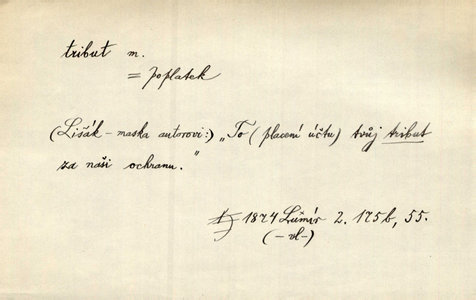 tribut m.
= poplatek
(Lišák – maska autorovi:) „To (placení účtu) tvůj tribut
za naši ochranu."
1874 Lumír 2. 175b, 55.
(-vl-)